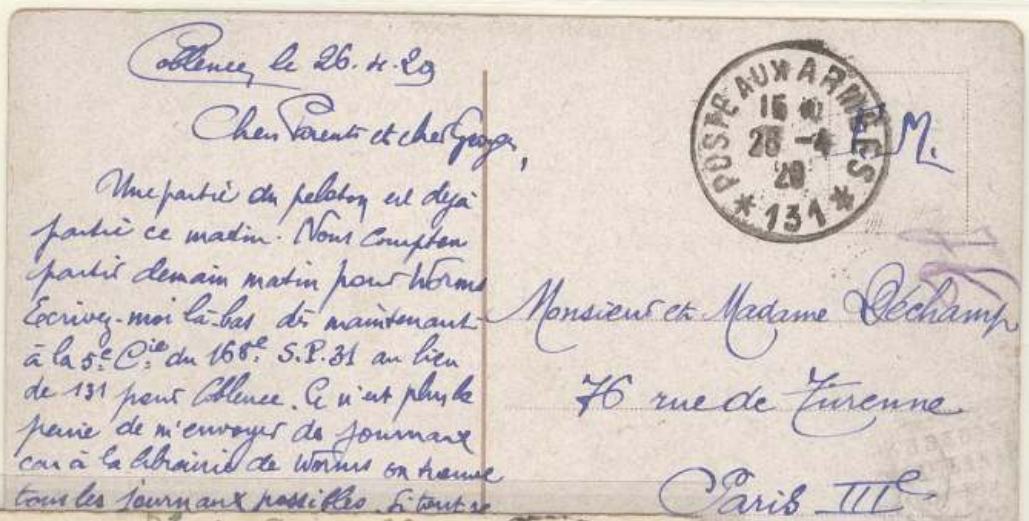 Coblence, le 26.4.29
Chers Parents et cher Georges,
Une partie du peloton est déjà
partie ce matin. Nous comptons
partir demain matin pour Worms
Ecrivez-moi là-bas dès maintenant
à la 5e Cie du 168e S.P.31 au lieu
de 131 pour Coblence. Ce n'est plus la
peine de m'envoyer de journaux
car à la librairie de Worms on trouve
tous les journaux possibles. Si tout se
POSTE AUX ARMEES
15
26 -4
29
* 131 *
F.M.
Monsieur et Madame Déchamp
76 rue de Turenne
Paris IIIe